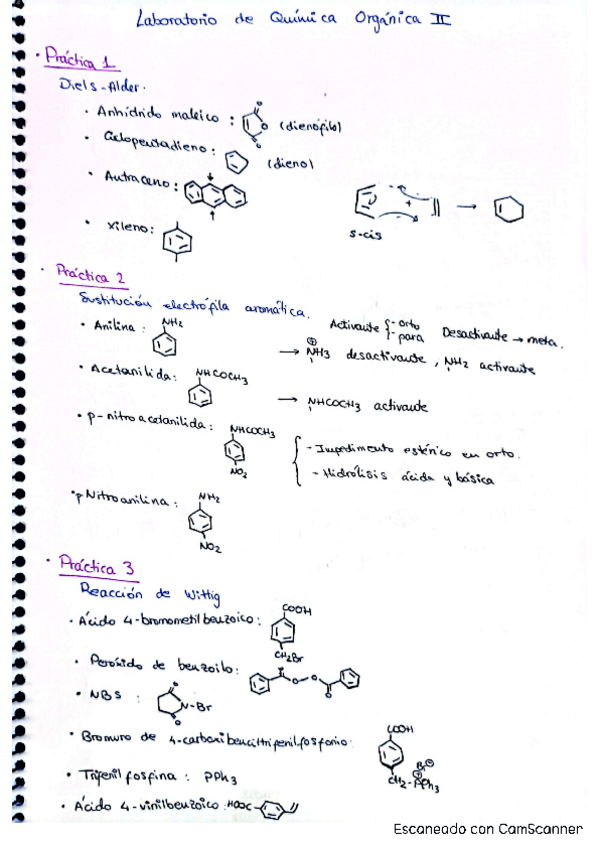 Laboratorio de Química Orgánica II
· Práctica 1
Diels-Alder.
· Anhídrido maleico : (dienófilo)
O
O
O
· Ciclopentadieno : (dieno)
· Antraceno :
+ →
s-cis
· xileno :
· Práctica 2
Sustitución electrófila aromática.
Activante { - orto
- para
Desactivante → meta.
· Anilina : NH2
→ ⊕NH3 desactivante, NH2 activante
· Acetanilida : NHCOCH3
→ NHCOCH3 activante
· p-nitroacetanilida : NHCOCH3
NO2
{ - Impedimento estérico en orto.
- Hidrólisis ácida y básica
· p Nitroanilina : NH2
NO2
· Práctica 3
Reacción de Wittig
· Ácido 4-bromometilbenzoico : COOH
CH2Br
· Peróxido de benzoilo :
O
O-O
O
· NBS : N-Br
O
O
· Bromuro de 4-carboxibenciltrifenilfosfonio : COOH
Br⊖
CH2-⊕PPh3
· Trifenilfosfina : PPh3
· Ácido 4-vinilbenzoico : HOOC
Escaneado con CamScanner